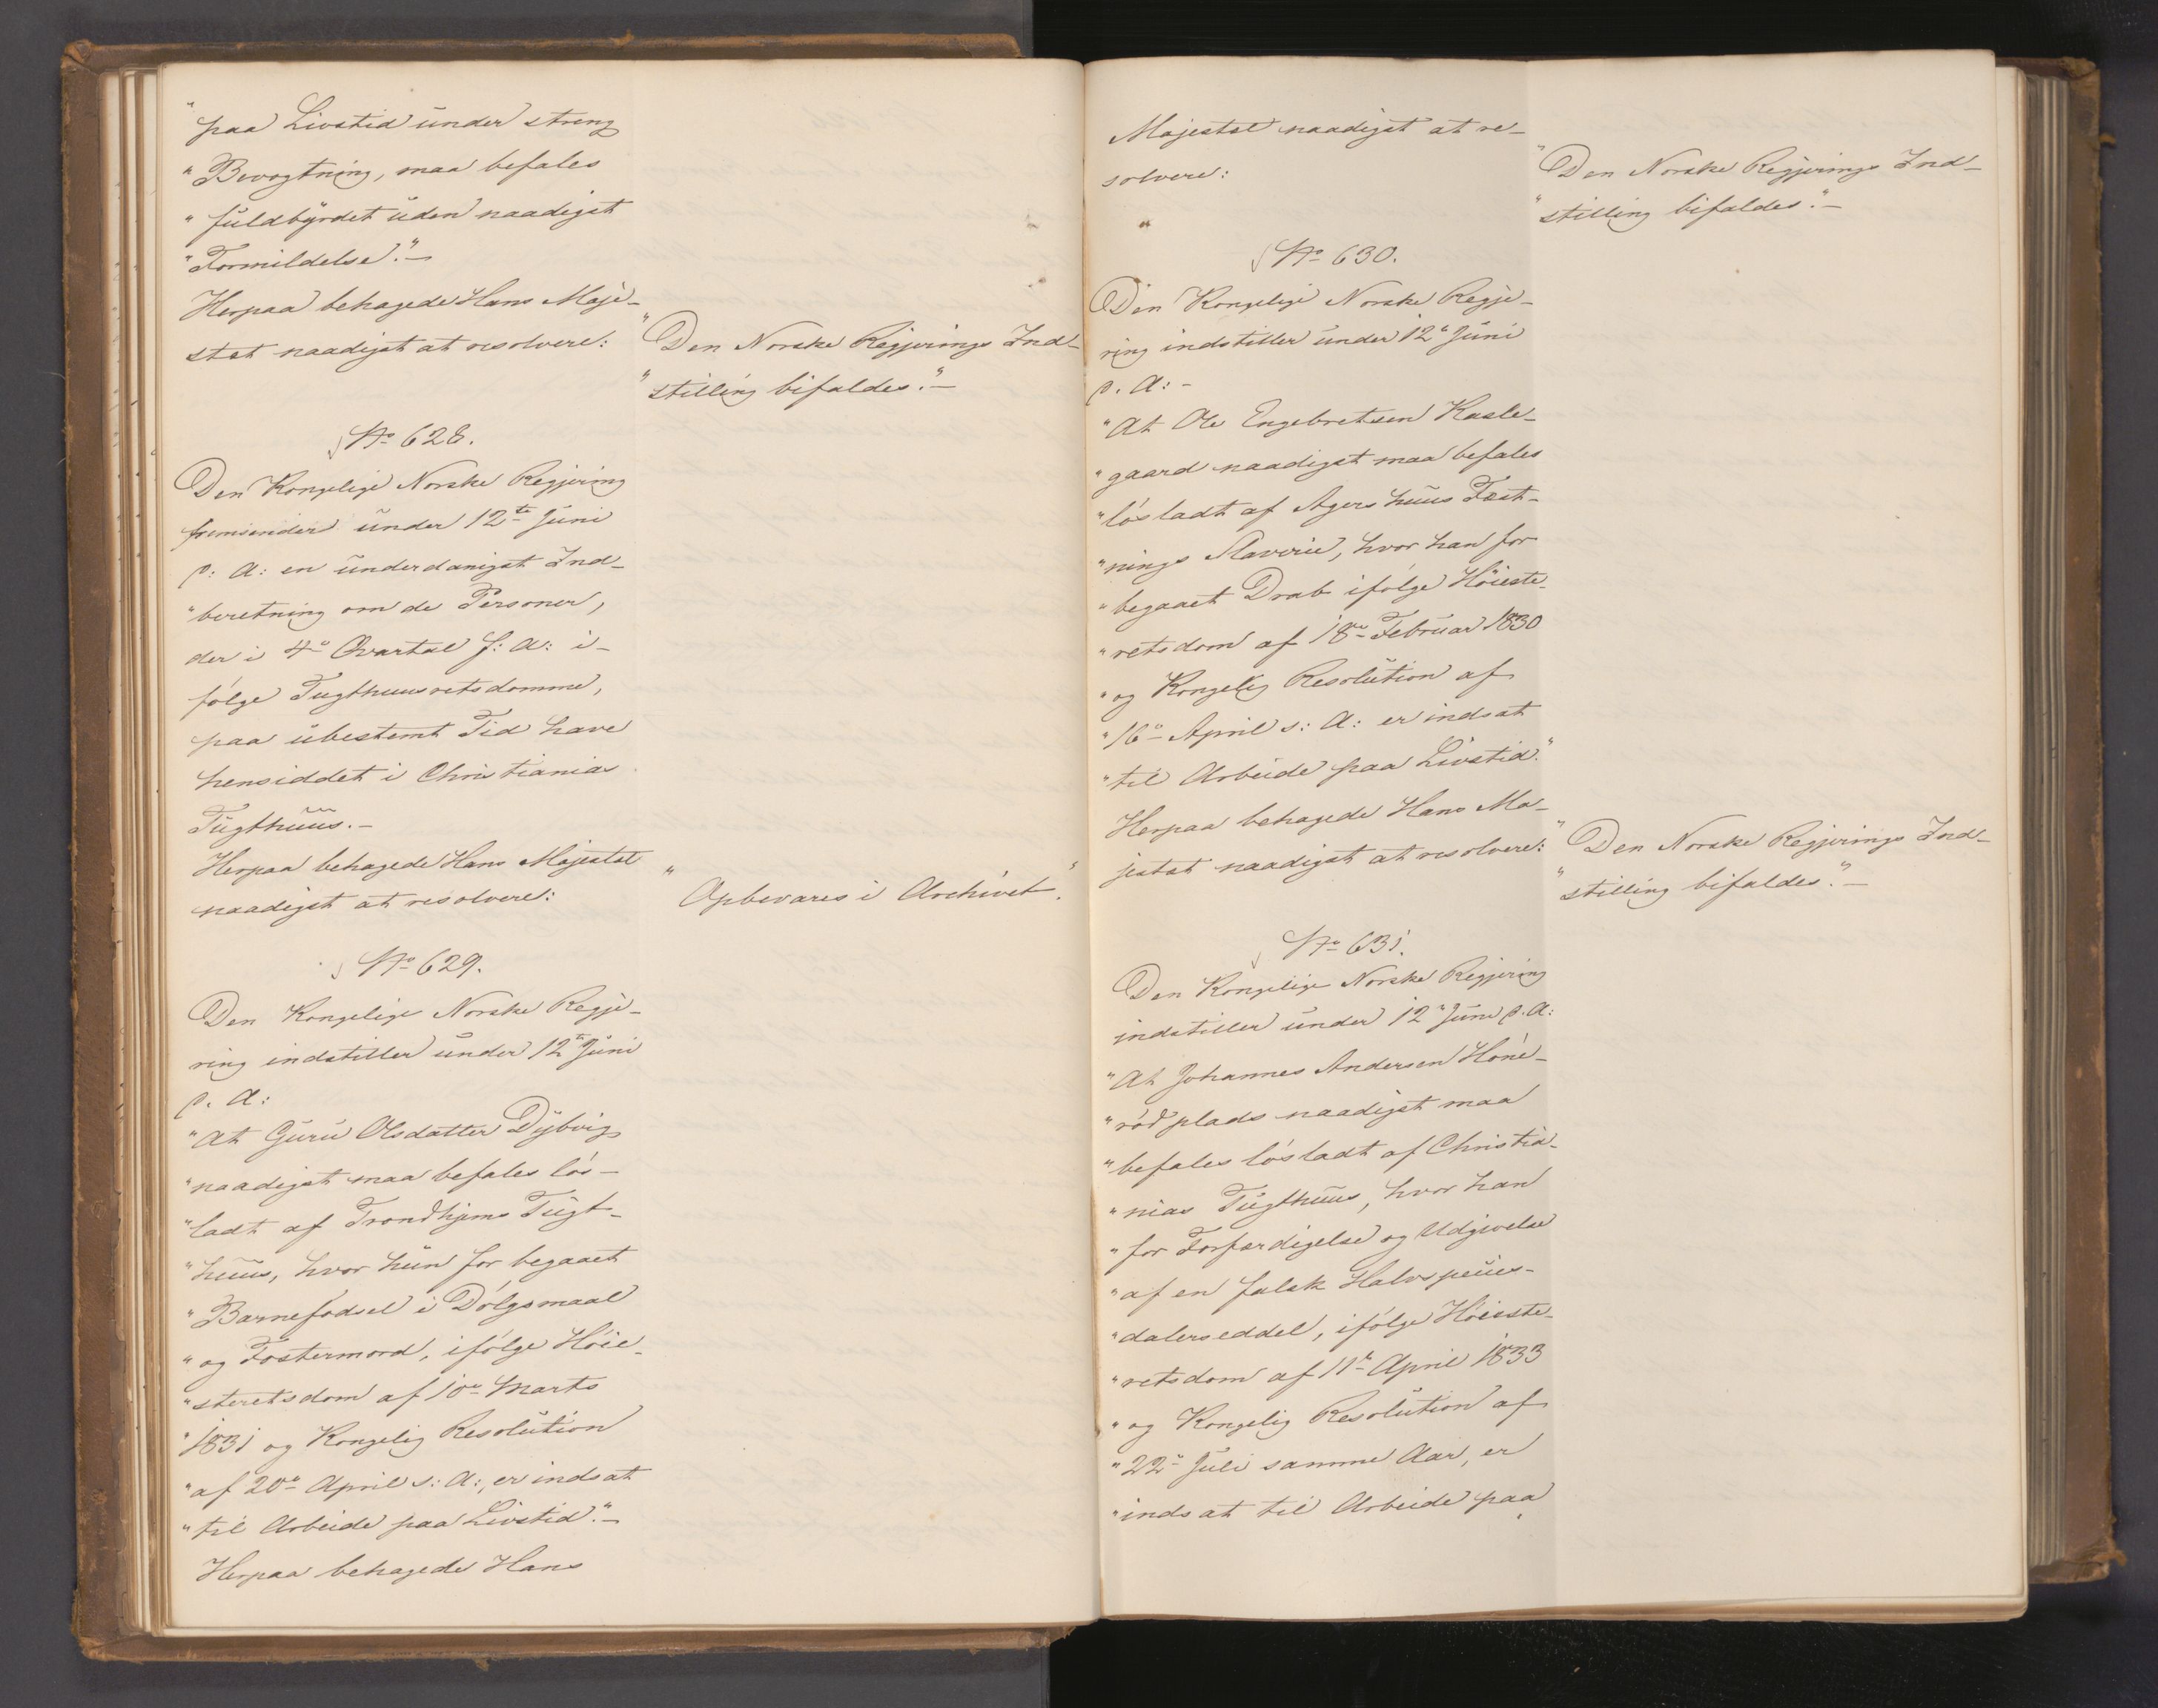 "paa Livstid under streng
"Bevogtning, maa befales
"fuldbyrdet uden naadigst
"Formildelse".—
Herpaa behagede Hans Maje-
stæt naadigst at resolvere:
"Den Norske Regjerings Ind-
"stilling bifaldes."—
No 628.
Den Kongelige Norske Regjering
fremsender under 12te Juni
p: A: en underdanigst Ind-
"beretning om de Personer,
der i 4de Qvartal f: A: i-
følge Tugthuusretsdomme,
paa ubestemt Tid have
hensiddet i Christianias
Tugthuus.—
Herpaa behagede Hans Majestæt
naadigst at resolvere:
"Opbevares i Archivet."
No 629.
Den Kongelige Norske Regje-
ring indstiller under 12te Juni
p. A:
"At Guru Olsdatter Dybvig
"naadigst maa befales løs-
"ladt af Trondhjems Tugt-
"huus, hvor hun for begaaet
"Barnefødsel i Dølgsmaal
"og Fostermord, ifølge Høie-
"steretsdom af 10de Marts
"1831 og Kongelig Resolution
"af 20de April s: A:, er indsat
"til Arbeide paa Livstid".—
Herpaa behagede Hans
Majestæt naadigst at re-
solvere:
"Den Norske Regjerings Ind-
"stilling bifaldes."—
No 630.
Den Kongelige Norske Regje-
ring indstiller under 12te Juni
p. A:-
"At Ole Engebretsen Kasle-
"gaard naadigst maa befales
"løsladt af Agershuus Fæst-
"nings Slaverie, hvor han for
"begaaet Drab ifølge Høieste-
"retsdom af 18de Februar 1830
"og Kongelig Resolution af
"16de April s: A: er indsat
"til Arbeide paa Livstid."
Herpaa behagede Hans Ma-
jestæt naadigst at resolvere:
"Den Norske Regjerings Ind-
"stilling bifaldes."—
No 631.
Den Kongelige Norske Regjering
indstiller under 12te Juni p. A:
"At Johannes Andersen Höne-
"rød plads naadigst maa
"befales løsladt af Christia-
"nias Tugthuus, hvor han
"for Forfærdigelse og Udgivelse
"af en falsk Halvspecies-
"dalerseddel, ifølge Høieste-
"retsdom af 11te April 1833
"og Kongelig Resolution af
"22de Juli samme Aar, er
"indsat til Arbeide paa